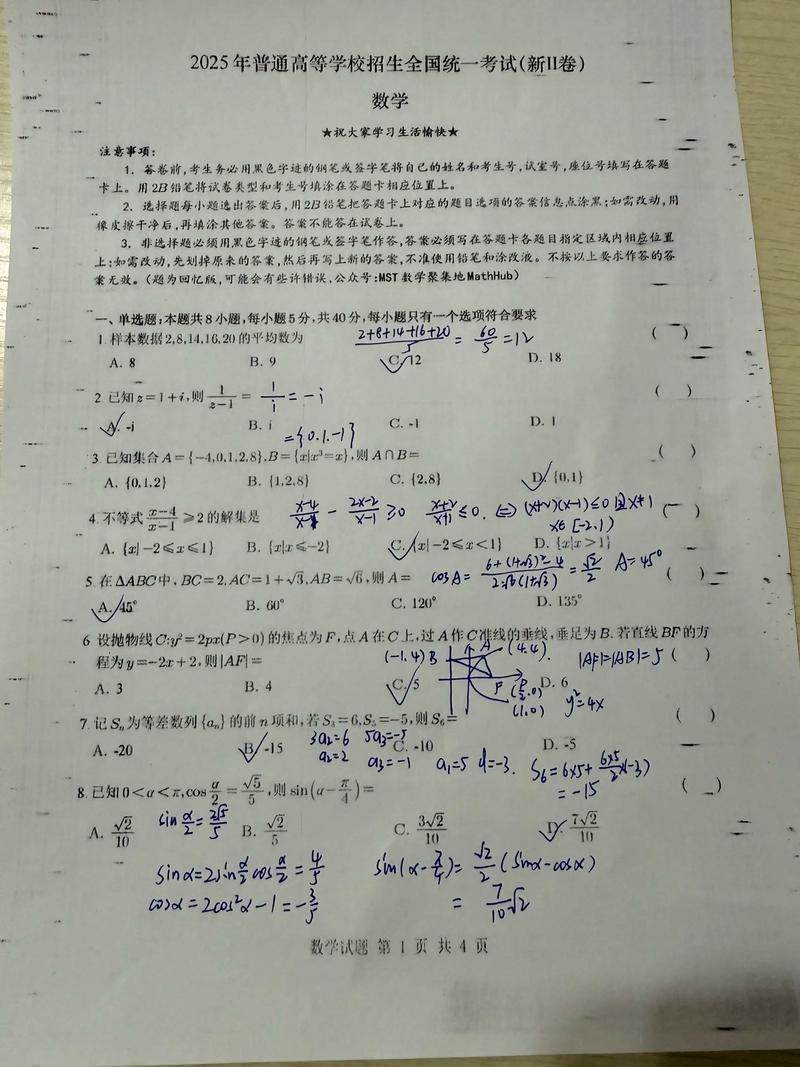 2025年普通高等学校招生全国统一考试(新II卷)
数学
★祝大家学习生活愉快★
注意事项:
1. 答卷前,考生务必用黑色字迹的钢笔或签字笔将自己的姓名和考生号,试室号,座位号填写在答题
卡上。用2B铅笔将试卷类型和考生号填涂在答题卡相应位置上。
2. 选择题每小题选出答案后,用2B铅笔把答题卡上对应的题目选项的答案信息点涂黑;如需改动,用
橡皮擦干净后,再填涂其他答案。答案不能答在试卷上。
3. 非选择题必须用黑色字迹的钢笔或签字笔作答,答案必须写在答题卡各题目指定区域内相应位置
上;如需改动,先划掉原来的答案,然后再写上新的答案,不准使用铅笔和涂改液。不按以上要求作答的答
案无效。(题为回忆版,可能会有些许错误,公众号:MST数学聚集地MathHub)
一、单选题:本题共8小题,每小题5分,共40分,每小题只有一个选项符合要求
1. 样本数据2,8,14,16,20的平均数为 (2+8+14+16+20)/5 = 60/5 = 12 ( )
A. 8 B. 9 C. 12 D. 18
2. 已知z=1+i,则 1/(z-1) = 1/i = -i ( )
A. -i B. i C. -1 D. 1
={0,1,-1}
3. 已知集合A={-4,0,1,2,8},B={x|x³=x},则A∩B= ( )
A. {0,1,2} B. {1,2,8} C. {2,8} D. {0,1}
4. 不等式 (x-4)/(x-1) ≥2的解集是 - (2x-2)/(x-1) ≥0 (x+2)/(x+1) ≤0. ⇔ (x+2)(x-1)≤0且x≠1 ( )
x∈[-2,1)
A. {x|-2≤x≤1} B. {x|x≤-2} C. {x|-2≤x<1} D. {x|x>1}
5. 在ΔABC中,BC=2,AC=1+√3,AB=√6,则A= cosA= (6+(1+√3)²-4)/(2·√6(1+√3)) = √2/2 A=45° ( )
A. 45° B. 60° C. 120° D. 135°
6 设抛物线C:y²=2px(P>0)的焦点为F,点A在C上,过A作C准线的垂线,垂足为B.若直线BF的方
程为y=-2x+2,则|AF|= (-1,4) B A (4,4). |AF|=|AB|=5 ( )
A. 3 B. 4 C. 5 F (P/2,0) D. 6
(1,0) y²=4x
7. 记Sₙ为等差数列{aₙ}的前n项和,若S₃=6,S₅=-5,则S₆= ( )
3a₂=6 5a₃=-5
A. -20 B. -15 C. -10 D. -5
a₂=2 a₃=-1 a₁=5 d=-3. S₆=6×5+ (6×5)/2 ×(-3)
=-15
8. 已知0<α<π,cos α/2 = √5/5,则sin(α-π/4)= ( )
sin α/2 = 2√5/5
A. √2/10 B. √2/5 C. 3√2/10 D. 7√2/10
sinα=2sin α/2 cos α/2 = 4/5 sin(α-π/4)= √2/2 (sinα-cosα)
cosα=2cos²α-1=-3/5 = 7/10 √2
数学试题 第 1 页 共 4 页